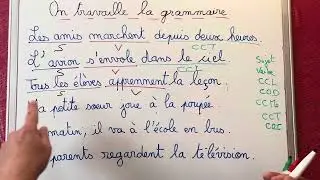 On travaille la grammaire
Les amis marchent depuis deux heures.
S V CCT
L'avion s'envole dans le ciel.
S V
Tous les élèves apprennent la leçon.
S V
petite soeur joue à la poupée.
matin, il va à l'école en bus.
parents regardent la télévision.
Sujet
Verbe
CCL
COD
CCM
CCT